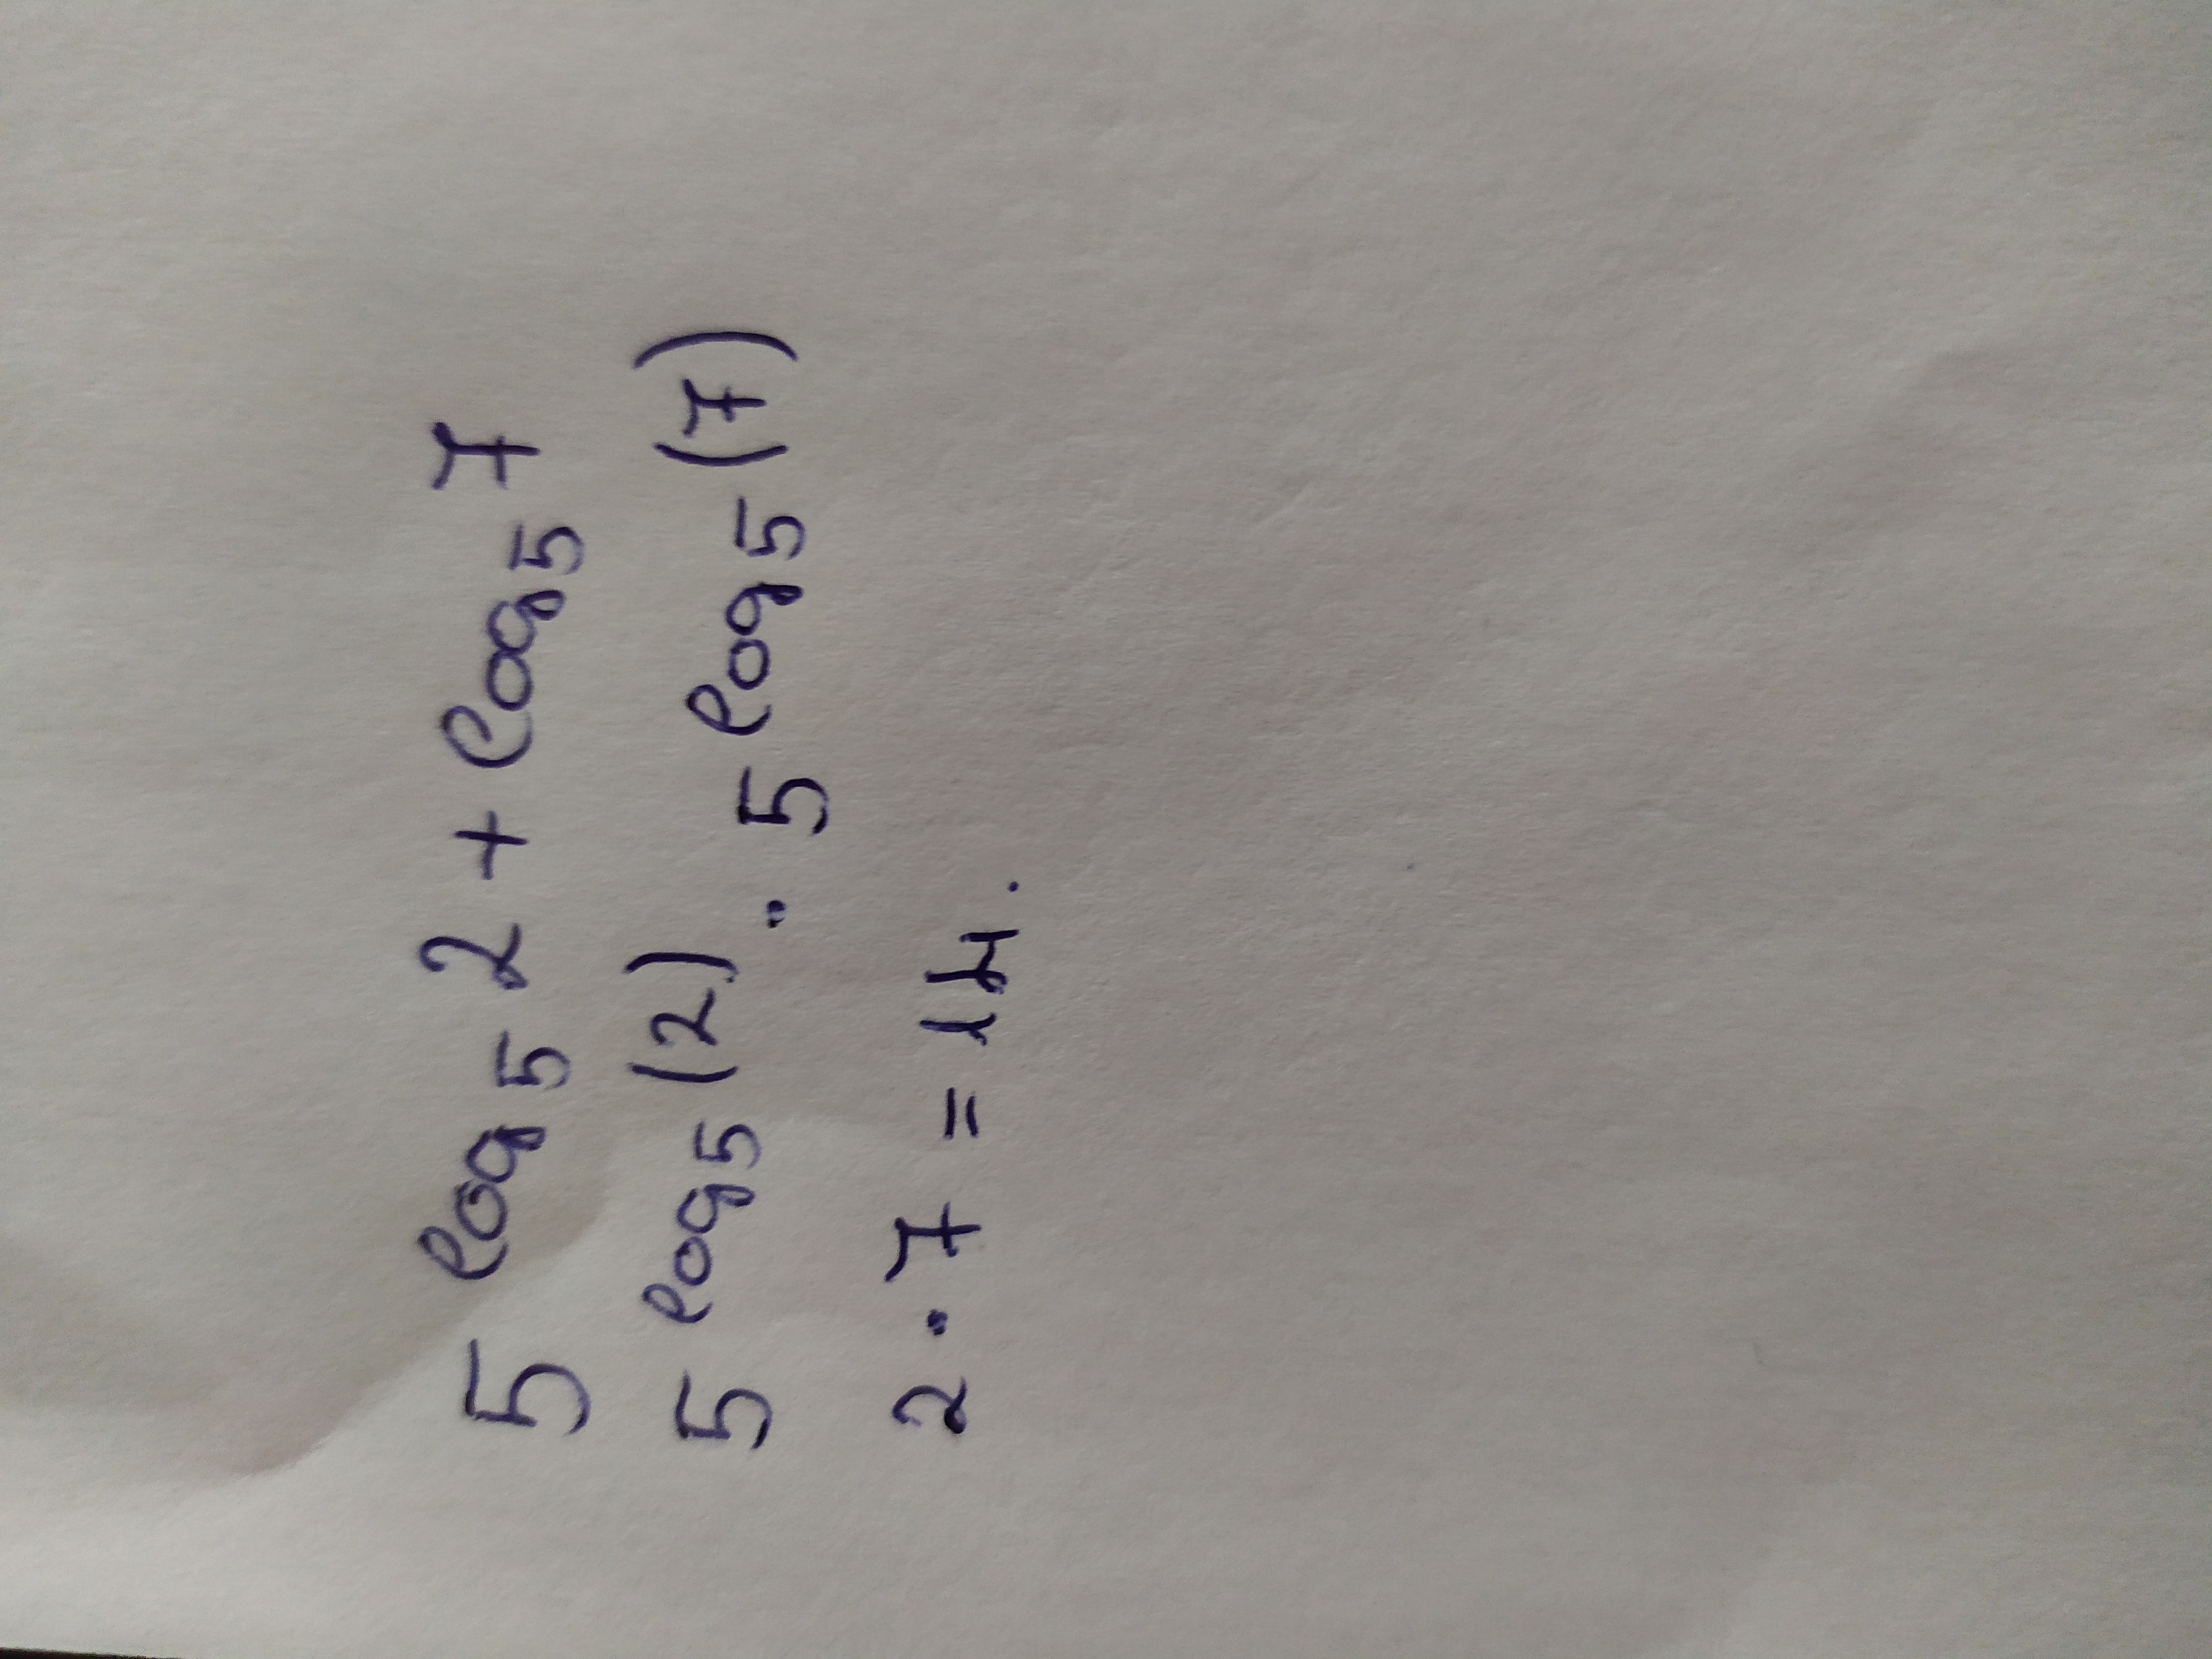 5 log₅ 2 + log₅ 7
5 log₅ (2) · 5 log₅ (7)
2 · 7 = 14.